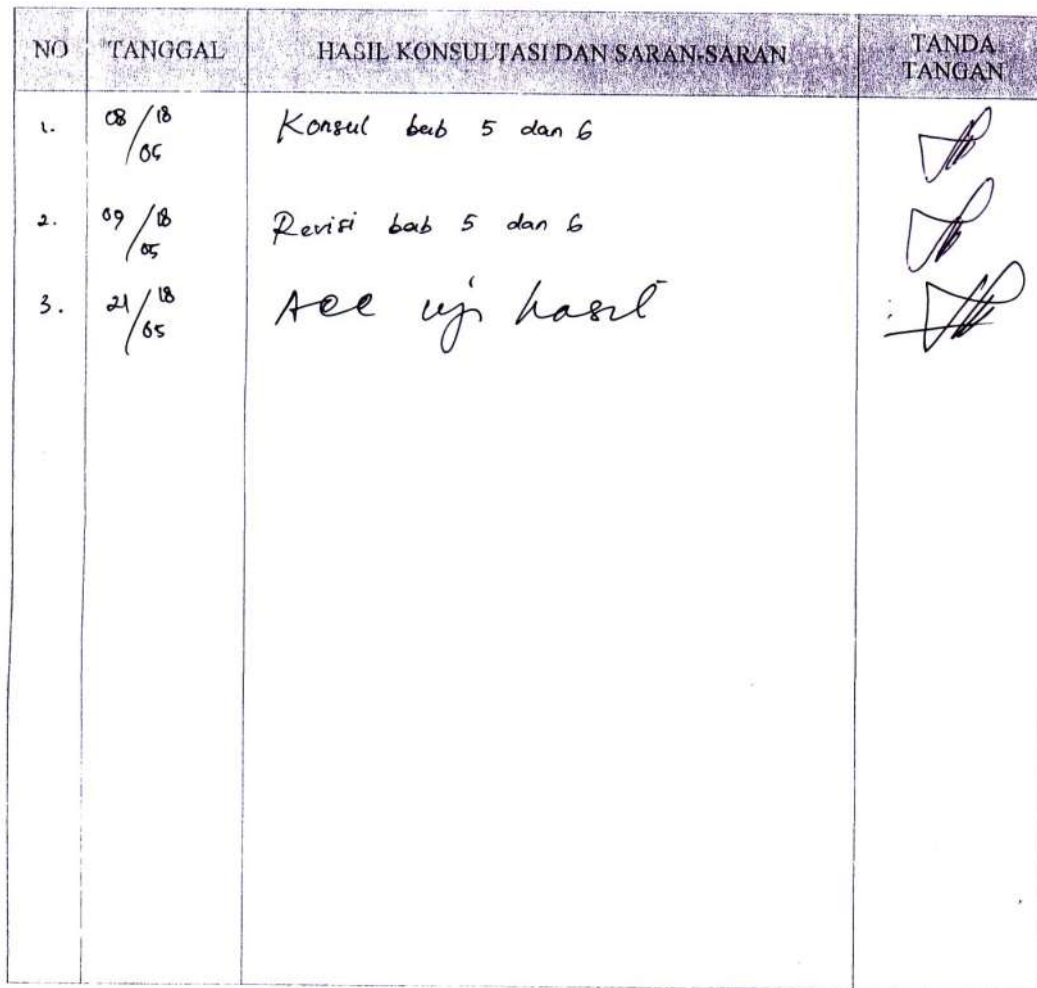 NO TANGGAL HASIL KONSULTASI DAN SARAN-SARAN TANDA TANGAN
1. 08/18 05 Konsul bab 5 dan 6
2. 09/18 05 Revisi bab 5 dan 6
3. 21/18 05 Acc uji hasil